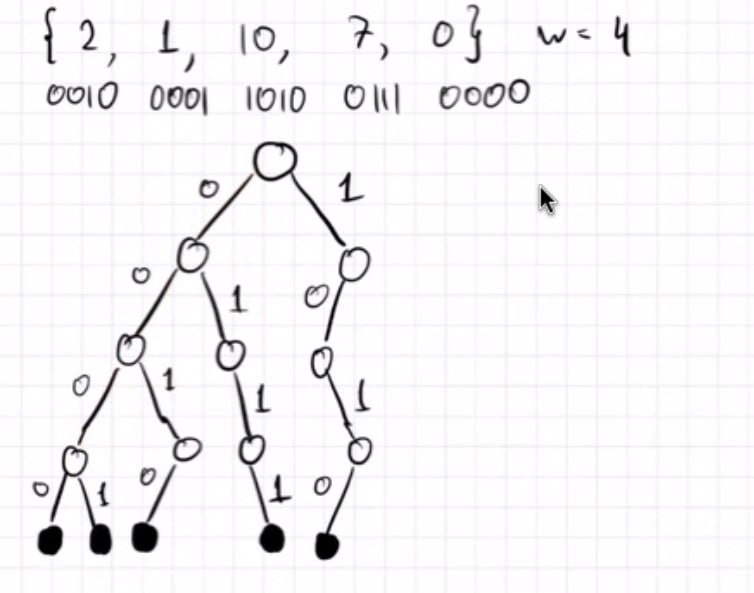 { 2, 1, 10, 7, 0} w = 4
0010 0001 1010 0111 0000
0 1
0 1 0
0 1 1 1
0 1 0 1 0